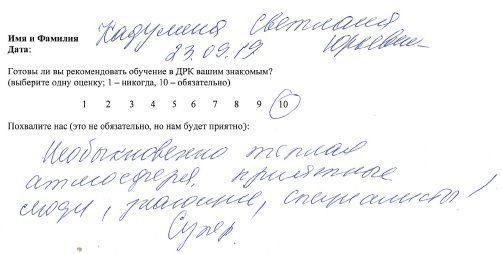 Имя и Фамилия Кадулина Светлана
Юрьевна
Дата: 23.09.19
Готовы ли вы рекомендовать обучение в ДРК вашим знакомым?
(выберите одну оценку; 1 – никогда, 10 – обязательно)
1 2 3 4 5 6 7 8 9 10
Похвалите нас (это не обязательно, но нам будет приятно):
Необыкновенно тёплая
атмосфера, приятные
люди, знающие, специалисты!
Супер